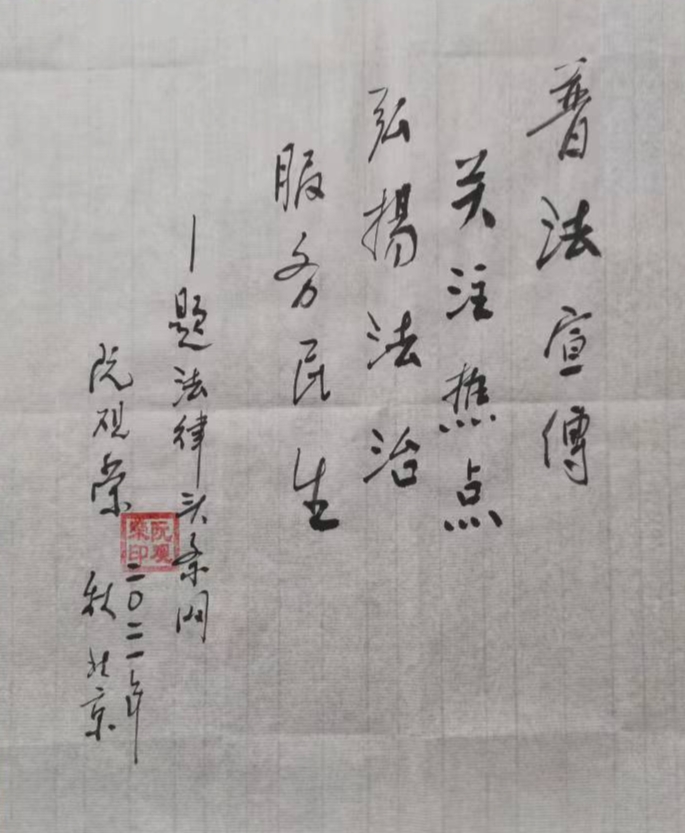 普法宣傳
关注焦点
弘揚法治
服务民生
—题法律头条网
阮观荣
二0二一年
秋北京
阮观
荣印